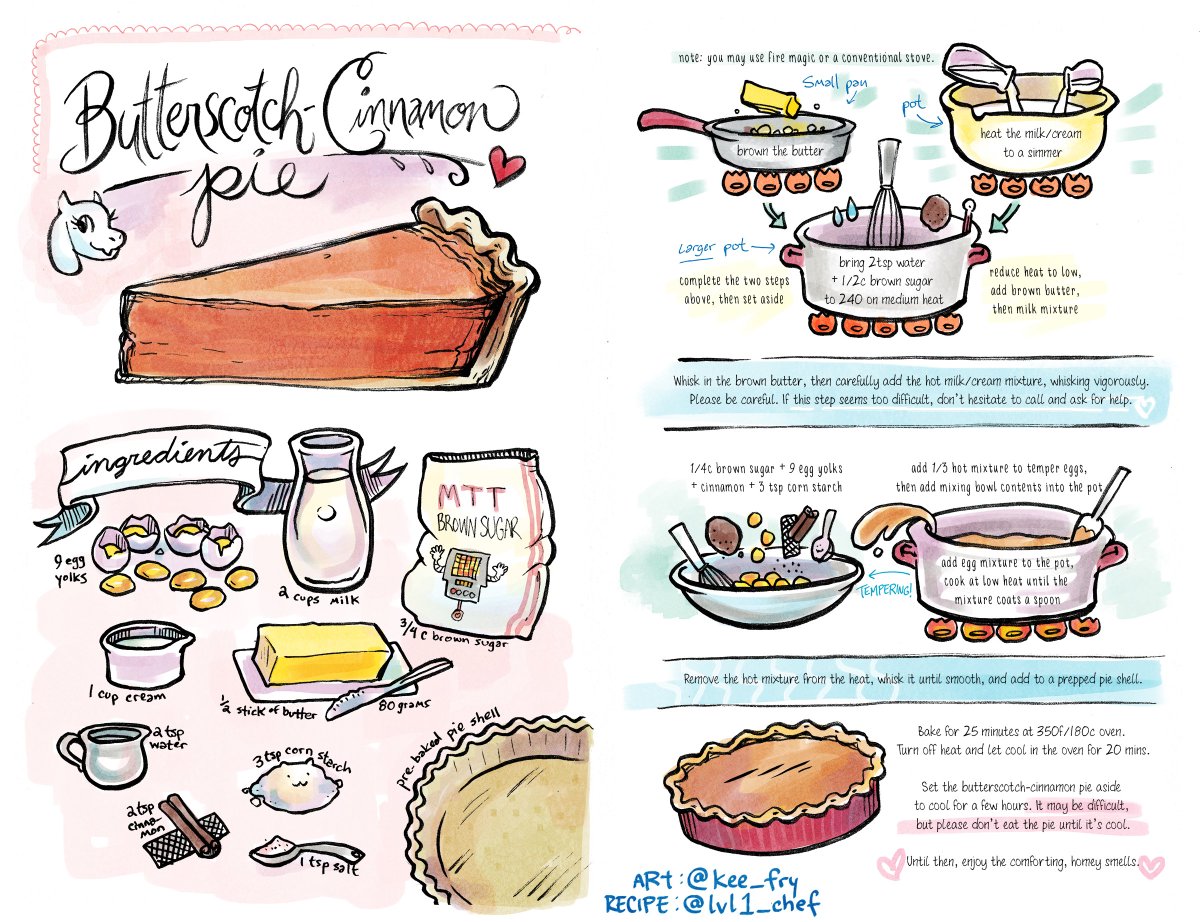 Butterscotch-Cinnamon
pie
ingredients
9 egg
yolks
2 cups milk
MTT
BROWN SUGAR
3/4 c brown sugar
1 cup cream
1/2 stick of butter
80 grams
2 tsp
water
3 tsp corn starch
2 tsp
cinna-
mon
1 tsp salt
pre-baked pie shell
note: you may use fire magic or a conventional stove.
Small pan
pot
brown the butter
heat the milk/cream
to a simmer
Larger pot
bring 2tsp water
+ 1/2c brown sugar
to 240 on medium heat
complete the two steps
above, then set aside
reduce heat to low,
add brown butter,
then milk mixture
Whisk in the brown butter, then carefully add the hot milk/cream mixture, whisking vigorously.
Please be careful. If this step seems too difficult, don't hesitate to call and ask for help.
1/4c brown sugar + 9 egg yolks
+ cinnamon + 3 tsp corn starch
add 1/3 hot mixture to temper eggs,
then add mixing bowl contents into the pot
TEMPERING!
add egg mixture to the pot,
cook at low heat until the
mixture coats a spoon
Remove the hot mixture from the heat, whisk it until smooth, and add to a prepped pie shell.
Bake for 25 minutes at 350f/180c oven.
Turn off heat and let cool in the oven for 20 mins.
Set the butterscotch-cinnamon pie aside
to cool for a few hours. It may be difficult,
but please don't eat the pie until it's cool.
Until then, enjoy the comforting, homey smells.
ART: @kee_fry
RECIPE: @lvl1_chef